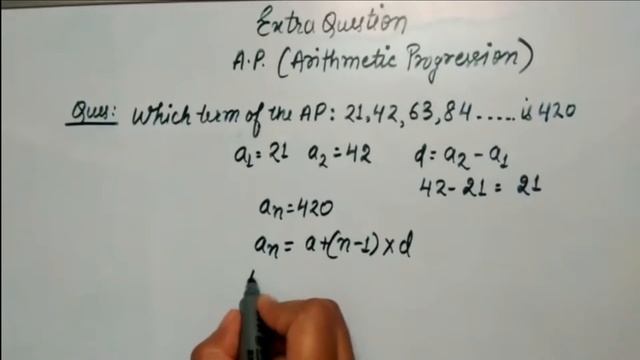 Extra Question
A.P. (Arithmetic Progression)
Ques: Which term of the AP: 21, 42, 63, 84 ..... is 420
a₁ = 21 a₂ = 42 d = a₂ - a₁
42 - 21 = 21
aₙ = 420
aₙ = a+(n-1) × d